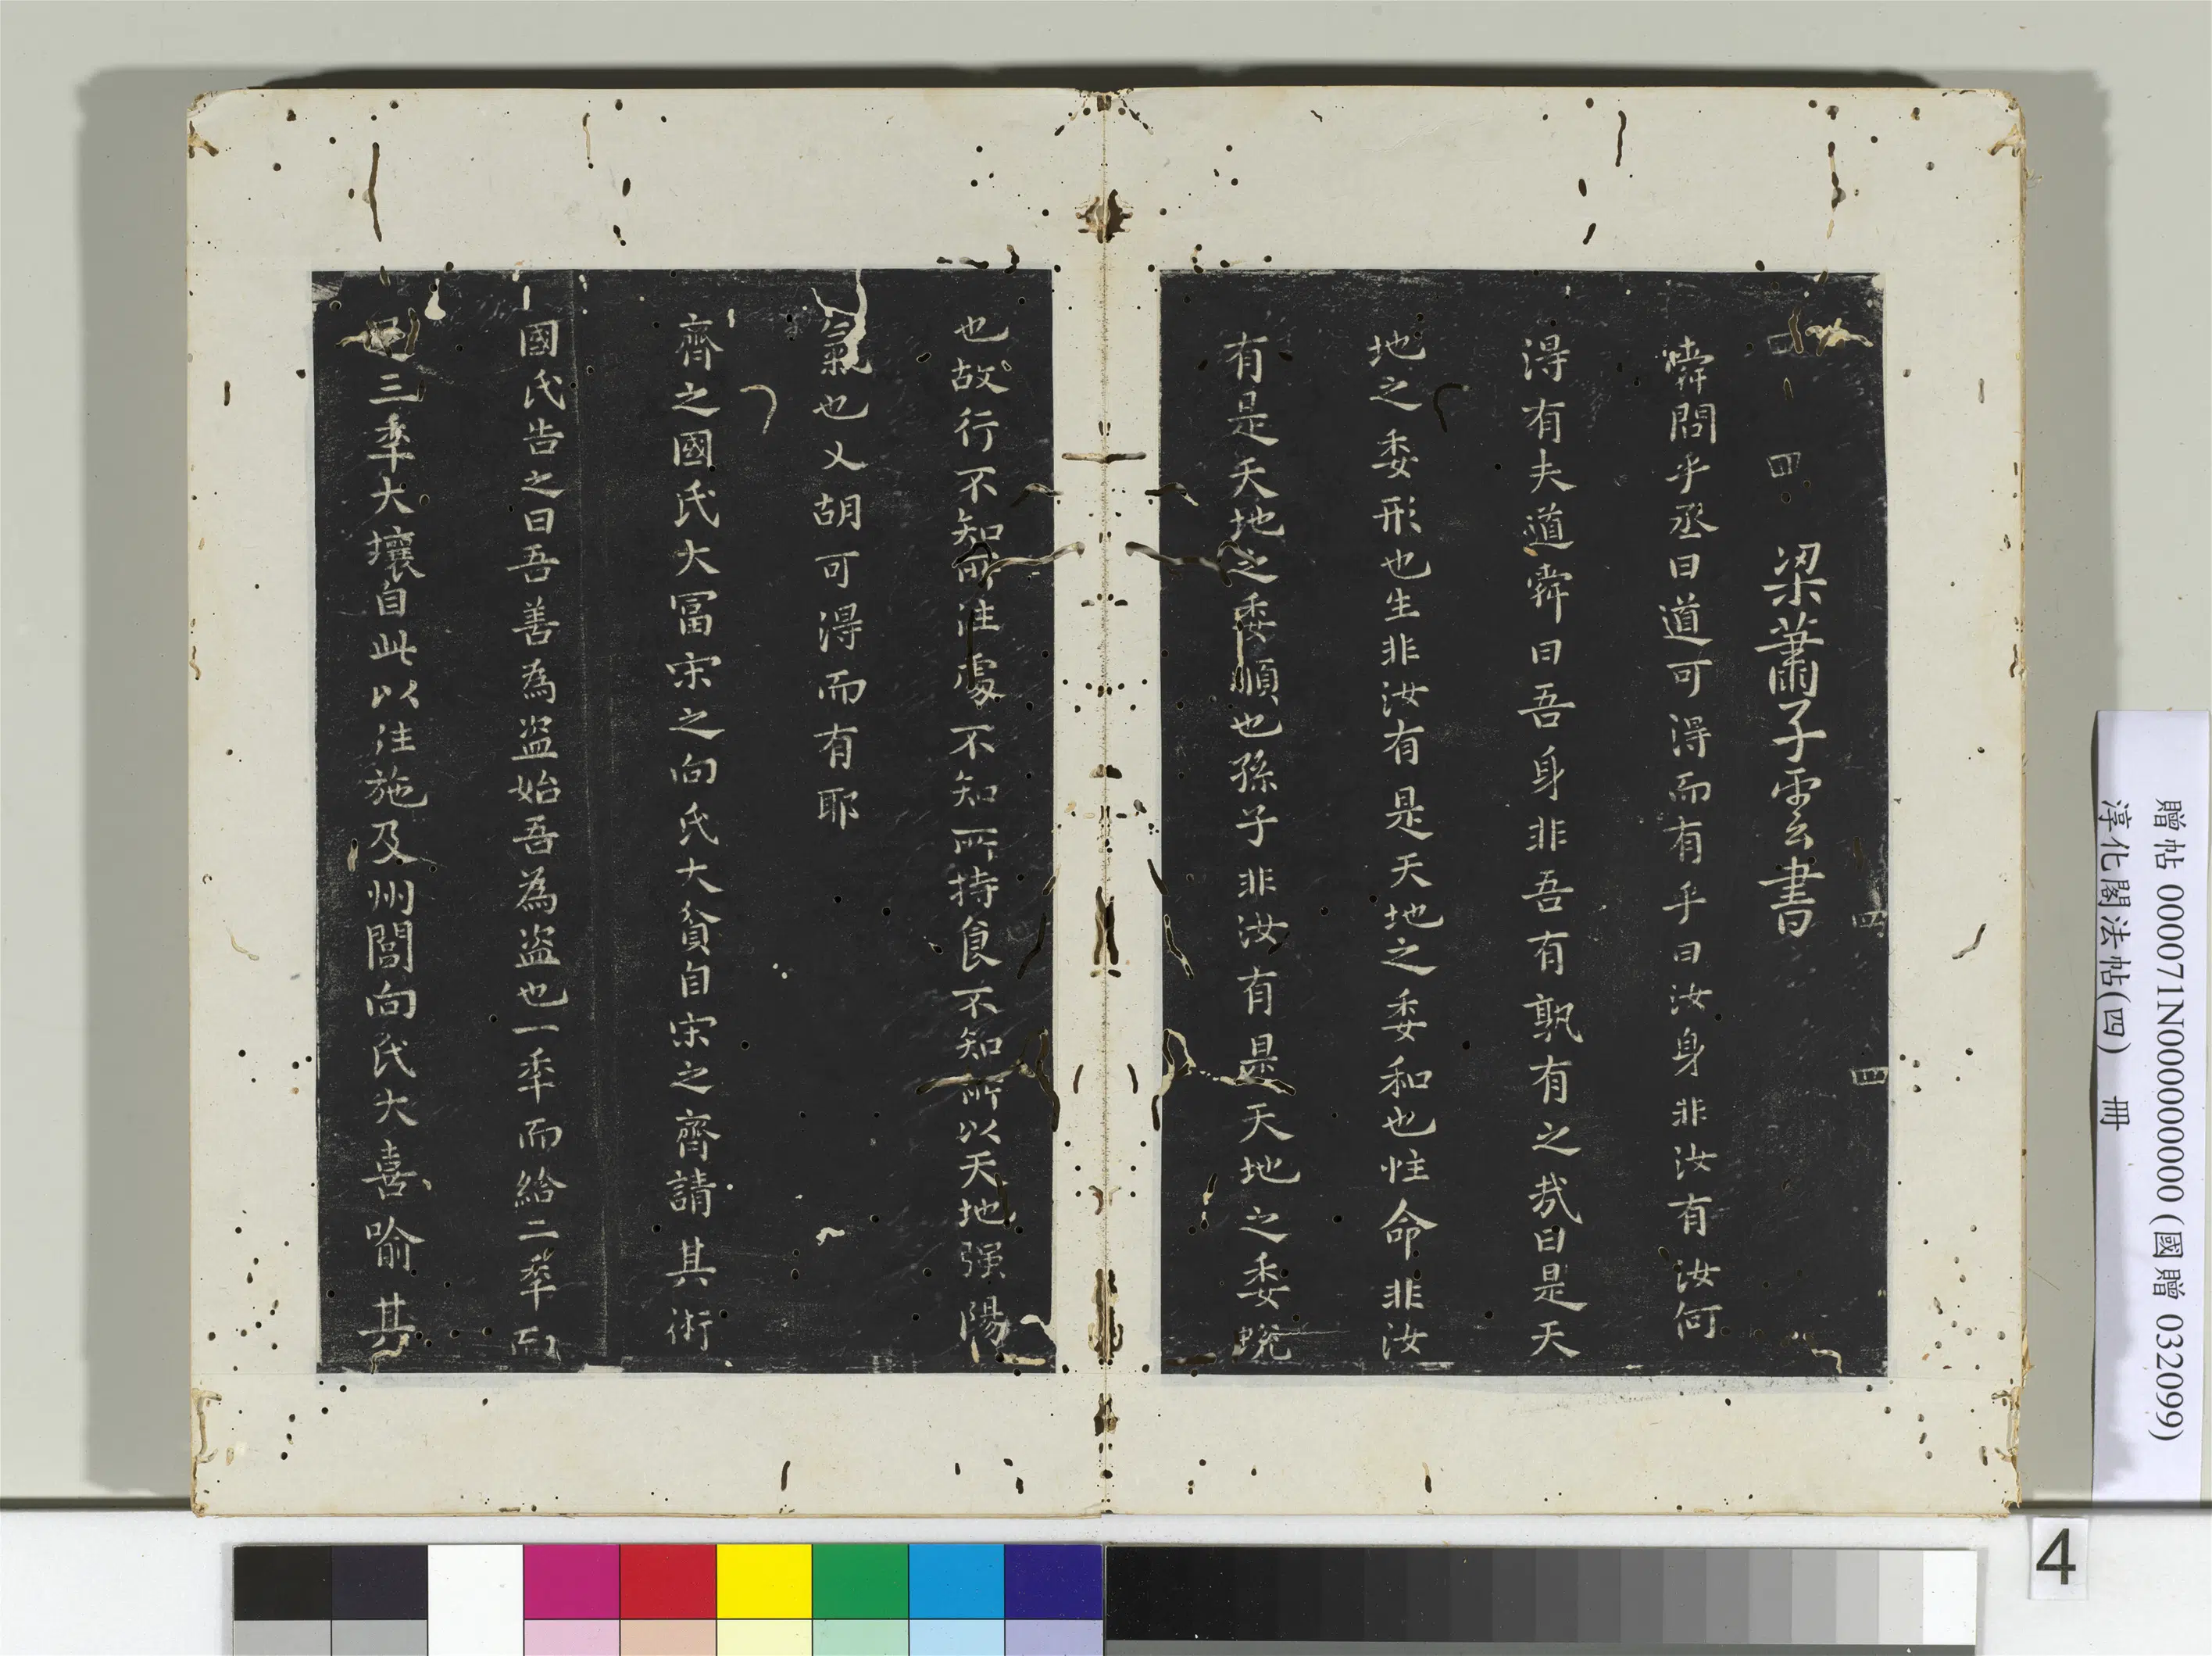 梁蕭子雲書
舜問乎丞曰道可得而有乎曰汝身非汝有汝何
得有夫道舜曰吾身非吾有孰有之哉曰是天
地之委形也生非汝有是天地之委和也性命非汝
有是天地之委順也孫子非汝有是天地之委蛻
也故行不知所往處不知所持食不知所以天地强陽
氣也又胡可得而有耶
齊之國氏大冨宋之向氏大貧自宋之齊請其術
國氏告之曰吾善為盜始吾為盜也一秊而給二秊而
足三秊大壤自此以往施及州閭向氏大喜喻其
四
四
四
贈帖 000071N000000000 (國贈 032099)
淳化閣法帖(四) 冊
4